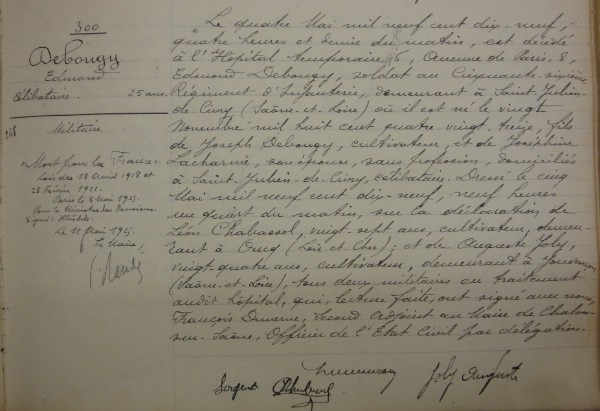 300
Debongy
Edmond
Célibataire. 25 ans.
Militaire
"Mort pour la France"
Lois des 18 Avril 1918 et
28 Février 1922.
Paris le 8 Mai 1925.
Pour le Ministre des Pensions.
Le 12 Mai 1925.
Le Maire,
Le quatre Mai mil neuf cent dix-neuf,
quatre heures et demie du matin, est décédé
à l'Hôpital temporaire 6, Avenue de Paris, 8,
Edmond Debongy, soldat au Cinquante-sixième
Régiment d'Infanterie, demeurant à Saint-Julien-
de-Civry (Saône-et-Loire) où il est né le vingt
Novembre mil huit cent quatre-vingt-treize, fils
de Joseph Debongy, cultivateur, et de Joséphine
Lacharme, son épouse, sans profession, domiciliés
à Saint-Julien-de-Civry, célibataire. Dressé le cinq
Mai mil neuf cent dix-neuf, neuf heures
un quart du matin, sur la déclaration de
Léon Chabassol, vingt-sept ans, cultivateur, demeu-
rant à (Loir-et-Cher); et de Auguste Joly,
vingt-quatre ans, cultivateur, demeurant à Jouvençon
(Saône-et-Loire), tous deux militaires en traitement
audit hôpital, qui, lecture faite, ont signé avec nous,
François Duverne, Second Adjoint au Maire de Chalon-
sur-Saône, Officier de l'Etat Civil par délégation.
Joly Auguste